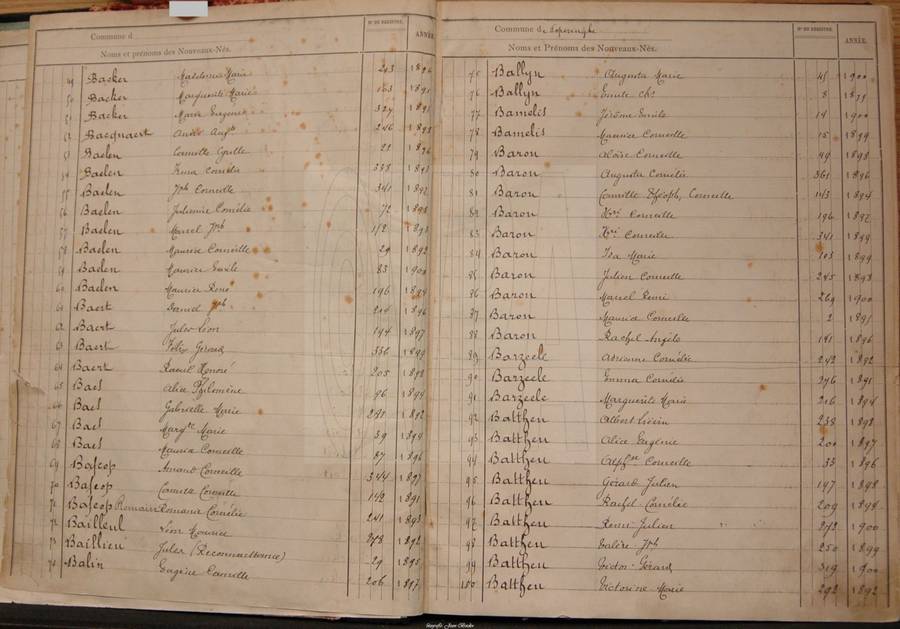 Commune d
Noms et prénoms des Nouveaux-Nés.
N° DU REGISTRE.
ANNÉE
49 Backer Marie 203 1896
50 Backer Marguerite Marie 163 1891
51 Backer Marie Eugenie 327 1891
52 Bacquaert 246 1898
53 Baelen Camille Cyrille 22 1896
54 Baelen Irma Cornélie 338 1891
55 Baelen Jph Corneille 341 1892
56 Baelen Julienne Cornélie 72 1898
57 Baelen Marcel Jph 112 1891
58 Baelen Maurice Corneille 29 1892
59 Baelen Maurice Emile 83 1900
60 Baelen Maurice René 196 1894
61 Baert Daniel Jph 214 1896
62 Baert Jules Léon 194 1897
63 Baert Félix Gérard 336 1899
64 Baert Raoul Honoré 205 1898
65 Baes Alice Philomène 96 1894
66 Baes Gabrielle Marie 291 1892
67 Baes Margte Marie 39 1894
68 Baes Maurice Corneille 87 1896
69 Bafcop Arnaud Corneille 344 1897
70 Bafcop Camille Corneille 142 1891
71 Bafcop Romain Romanie Cornélie 241 1893
72 Bailleul Léon Maurice 278 1892
73 Baillieu Jules (Reconnaissance) 29 1895
74 Balin Eugène Camille 206 1897
Commune de Poperinghe
Noms et Prénoms des Nouveaux-Nés.
N° DU REGISTRE.
ANNÉE.
75 Ballyn Augusta Marie 45 1900
76 Ballyn Emile Chs 8 1899
77 Bamelis Jérôme Emile 14 1900
78 Bamelis Maurice Corneille 15 1899
79 Baron Aloïse Corneille 49 1898
80 Baron Augusta Cornélie 361 1896
81 Baron Camille Théoph. Corneille 1894
82 Baron Hri Corneille 196 1892
83 Baron Hri Corneille 341 1899
84 Baron Ida Marie 103 1899
85 Baron Julien Corneille 245 1898
86 Baron Marcel Remi 269 1900
87 Baron Maurice Corneille 2 1891
88 Baron Rachel Angèle 191 1896
89 Barzeele Adrienne Cornélie 242 1892
90 Barzeele Emma Cornélie 276 1891
91 Barzeele Marguerite Marie 216 1894
92 Battheu Albert Liévin 238 1898
93 Battheu Alice Eugénie 200 1897
94 Battheu Corneille 35 1896
95 Battheu Gérard Julien 197 1898
96 Battheu Rachel Cornélie 209 1894
97 Battheu Remi Julien 272 1900
98 Battheu Valère Jph 250 1899
99 Battheu Victor Gérard 319 1900
100 Battheu Victorine Marie 292 1892